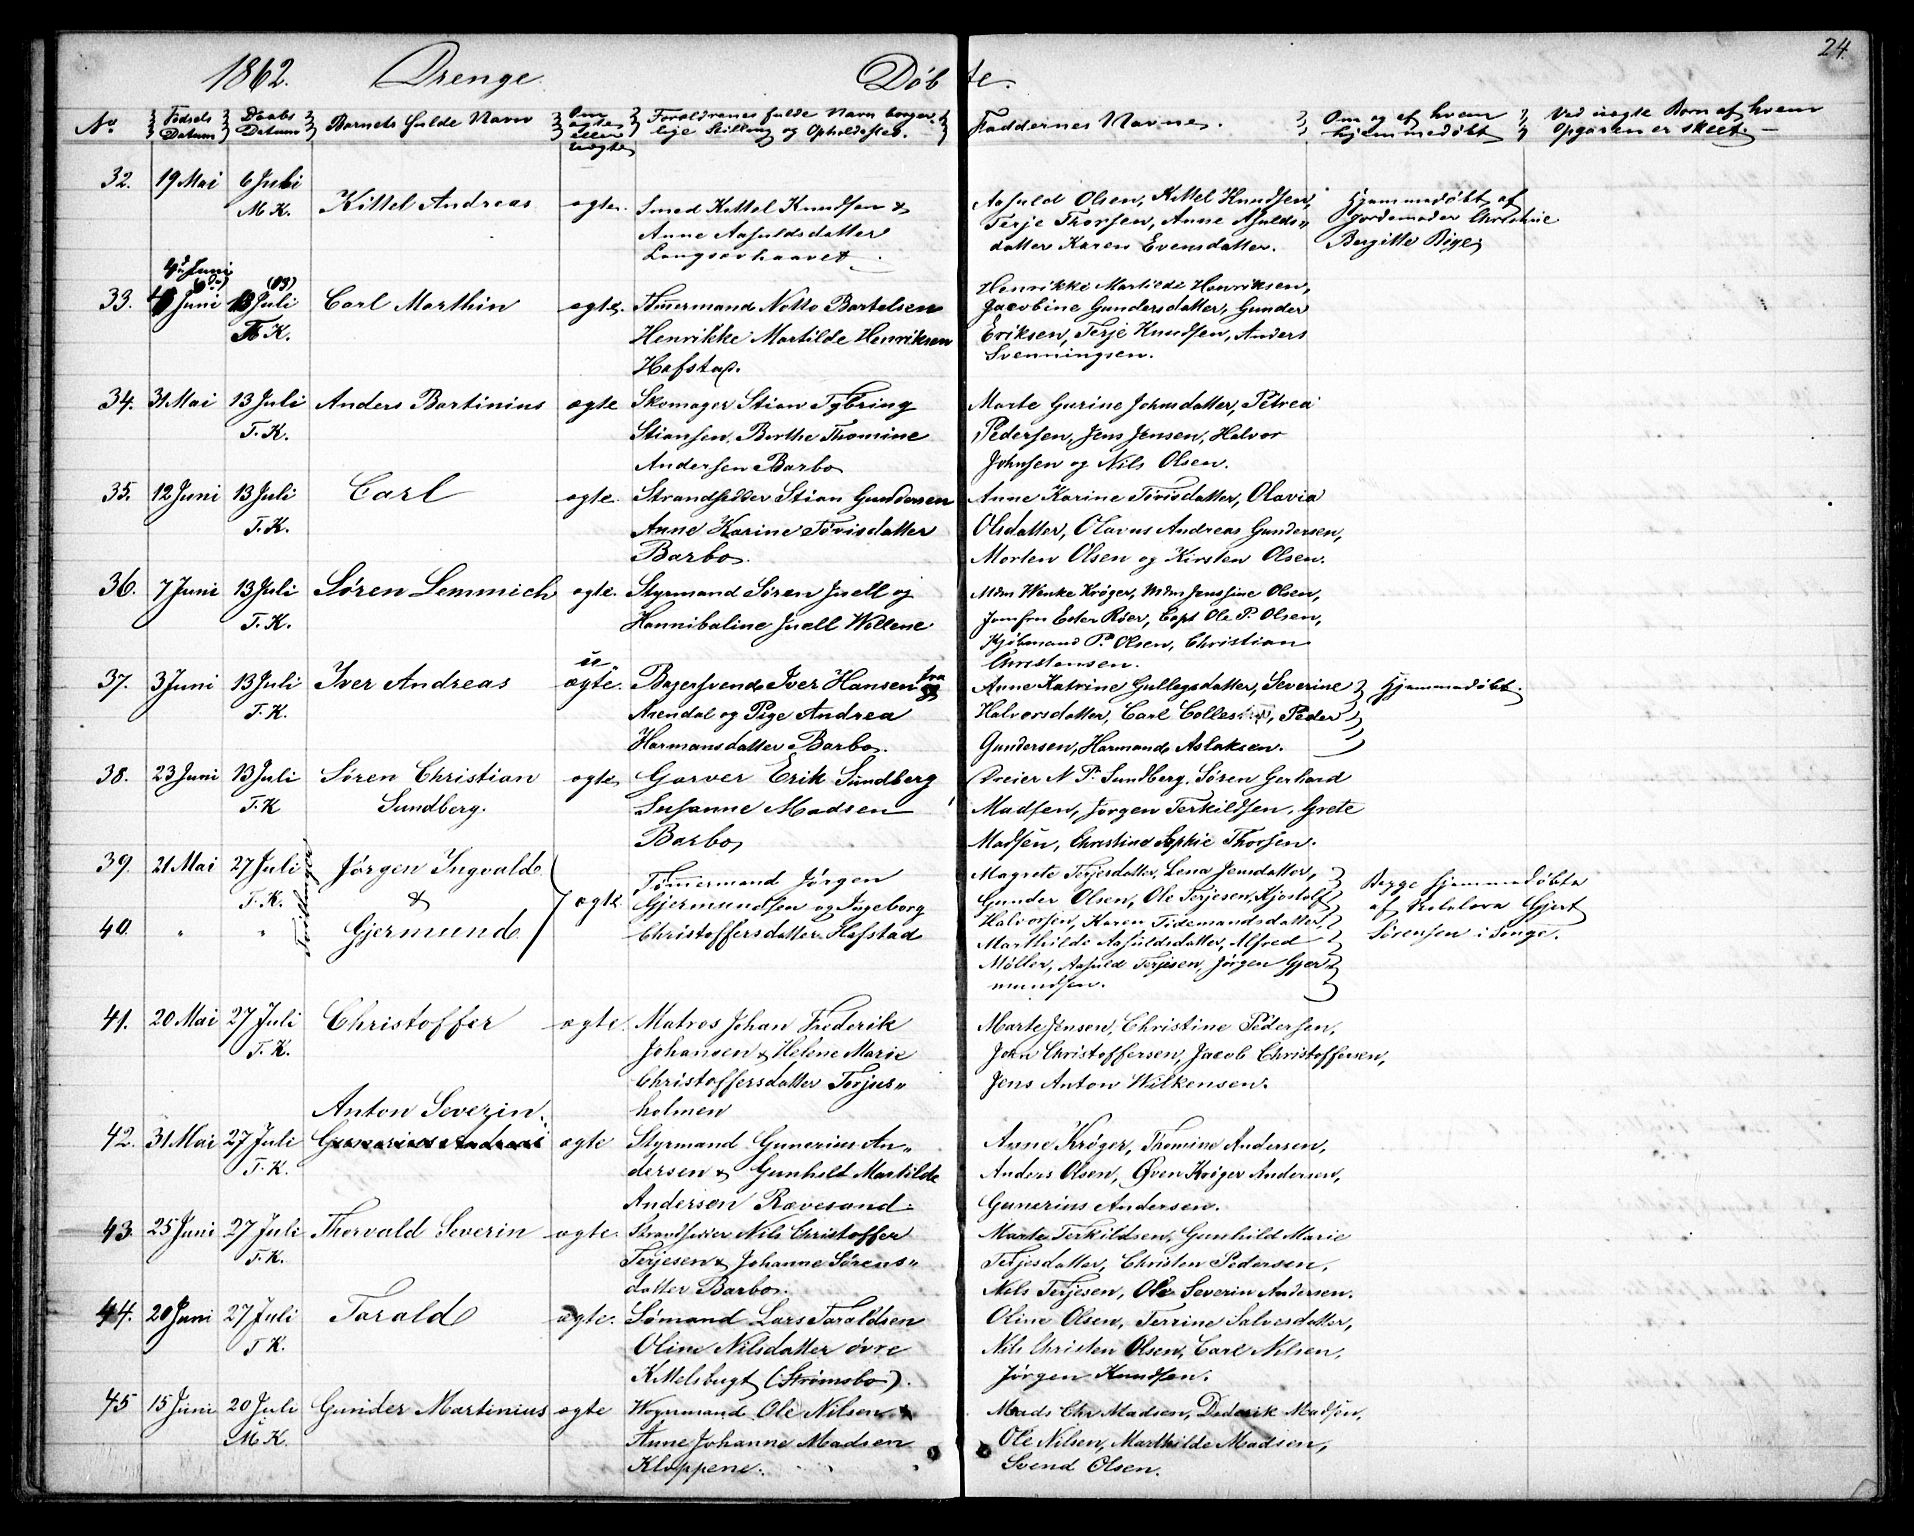 24.
1862. Drenge. Døbte.
No Fødsels Datum Daabs Datum Barnets fulde Navn Om ægte eller uægte Forældrenes fulde Navn borgerlige Stilling og Opholdssted. Faddernes Navne. Om og af hvem hjemmedøbt Ved uægte Børn af hvem Opgaven er skeet.
32. 19 Mai 6 Juli Kittel Andreas ægte. Smed Kittel Knudsen & Aasuld Olsen, Kittel Knudsen, Hjemmedøbt af
M.K. Anne Aasuldsdatter Terje Thorsen, Anne Asulds„ Jordemoder Christine
Langsævhaavet datter Karen Evensdatter. Bergitte Bige
4d Juni
33. Juni 13 Juli Carl Marthin ægte. Tømermand Notto Bartelsen Henrikke Martilde Henriksen,
T.K. Henrikke Martilde Henriksen Jacobine Gundersdatter, Gunder
Hafstad. Eriksen, Terje Knudsen, Anders
Svenningsen.
34. 31 Mai 13 Juli Anders Bartinius ægte Skomager Stian Tybring Marte Gurine Johnsdatter, Petrea
T.K. Stiansen, Berthe Thomine Pedersen, Jens Jensen, Halvor
Andersen Barbo Johnsen og Nils Olsen.
35. 12 Juni 13 Juli Carl ægte. Strandsidder Stian Gundersen Anne Karine Tovisdatter, Olavia
T.K. Anne Karine Tovisdatter Olsdatter, Olavus Andreas Gundersen,
Barbo. Morten Olsen og Kirsten Olsen.
36. 7 Juni 13 Juli Søren Lemmich ægte. Styrmand Søren Juell og Mdm Wenke Krøger, Mdm Jensine Olsen,
T.K. Hannibaline Juell Wollene Jomfru Ester Röer, Capt Ole P. Olsen,
Kjøbmand P. Olsen, Christian
Christensen.
37. 3 Juni 13 Juli Iver Andreas u„ ægte. Bagersvend Iver Hansen fra Anne Katrine Gullegsdatter, Severine Hjemmedøbt.
T.K. Arendal og Pige Andrea Halvorsdatter, Carl Peder
Harmansdatter Barbo. Gundersen, Harmand Aslaksen.
38. 23 Juni 13 Juli Søren Christian ægte Garver Erik Sundberg Dreier N. P. Sundberg, Søren Gerhard
T.K Sundberg. Susanne Madsen Madsen, Jørgen Terkildsen, Grete
Barbo Madsen, Christine Sophie Thorsen.
39. 21 Mai 27 Juli Jørgen Ingvald Tømermand Jørgen Magrete Terjesdatter, Lena Jensdatter, Begge hjemmedøbte
T.K. & ægte Gjermundsen og Ingeborg Gunder Olsen, Ole Terjesen, Kjøstolf af Gjert
40. „ „ Gjermund Christoffersdatter Hafstad Halvorsen, Karen Tidemandsdatter, Sørensen i Songe.
Marthilde Aasuldsdatter, Alfred
Møller, Aasuld Terjesen, Jørgen Gjer„
mundsen.
41. 20 Mai 27 Juli Christoffer ægte Matros Johan Frederik Marte Jensen, Christine Pedersen,
T.K. Johansen & Helene Marie John Christoffersen, Jacob Christoffersen,
Christoffersdatter Terjus„ Jens Anton Wilkensen.
Anton Severin. holmen
42. 31 Mai 27 Juli Gunerius Andreas ægte Styrmand Gunerius An„ Anne Krøger, Thomine Andersen,
T.K. dersen & Gunhild Martilde Anders Olsen, Øven Krøger Andersen,
Andersen Rævesand. Gunerius Andersen.
43. 25 Juni 27 Juli Thorvald Severin ægte Strandsidder Nils Christoffer Marte Terkildsen, Gunhild Marie
T.K. Terjesen & Johanne Sørens„ Terjesdatter, Christen Pedersen,
datter Barbo. Nels Terjesen, Ole Severin Andersen.
44. 20 Juni 27 Juli Tarald ægte. Sømand Lars Taraldsen Oline Olsen, Terrine Salvesdatter,
T.K. Oline Nilsdatter øvre Nils Christen Olsen, Carl Nilsen,
Kittelsbugt (Strømsbo). Jørgen Knudsen.
45 15 Juni 20 Juli Gunder Martinius ægte Wognmand Ole Nilsen & Mads Chr Madsen, Dederik Madsen,
M.K. Anne Johanne Madsen Ole Nilsen, Marthilde Madsen,
Kloppene. Svend Olsen.